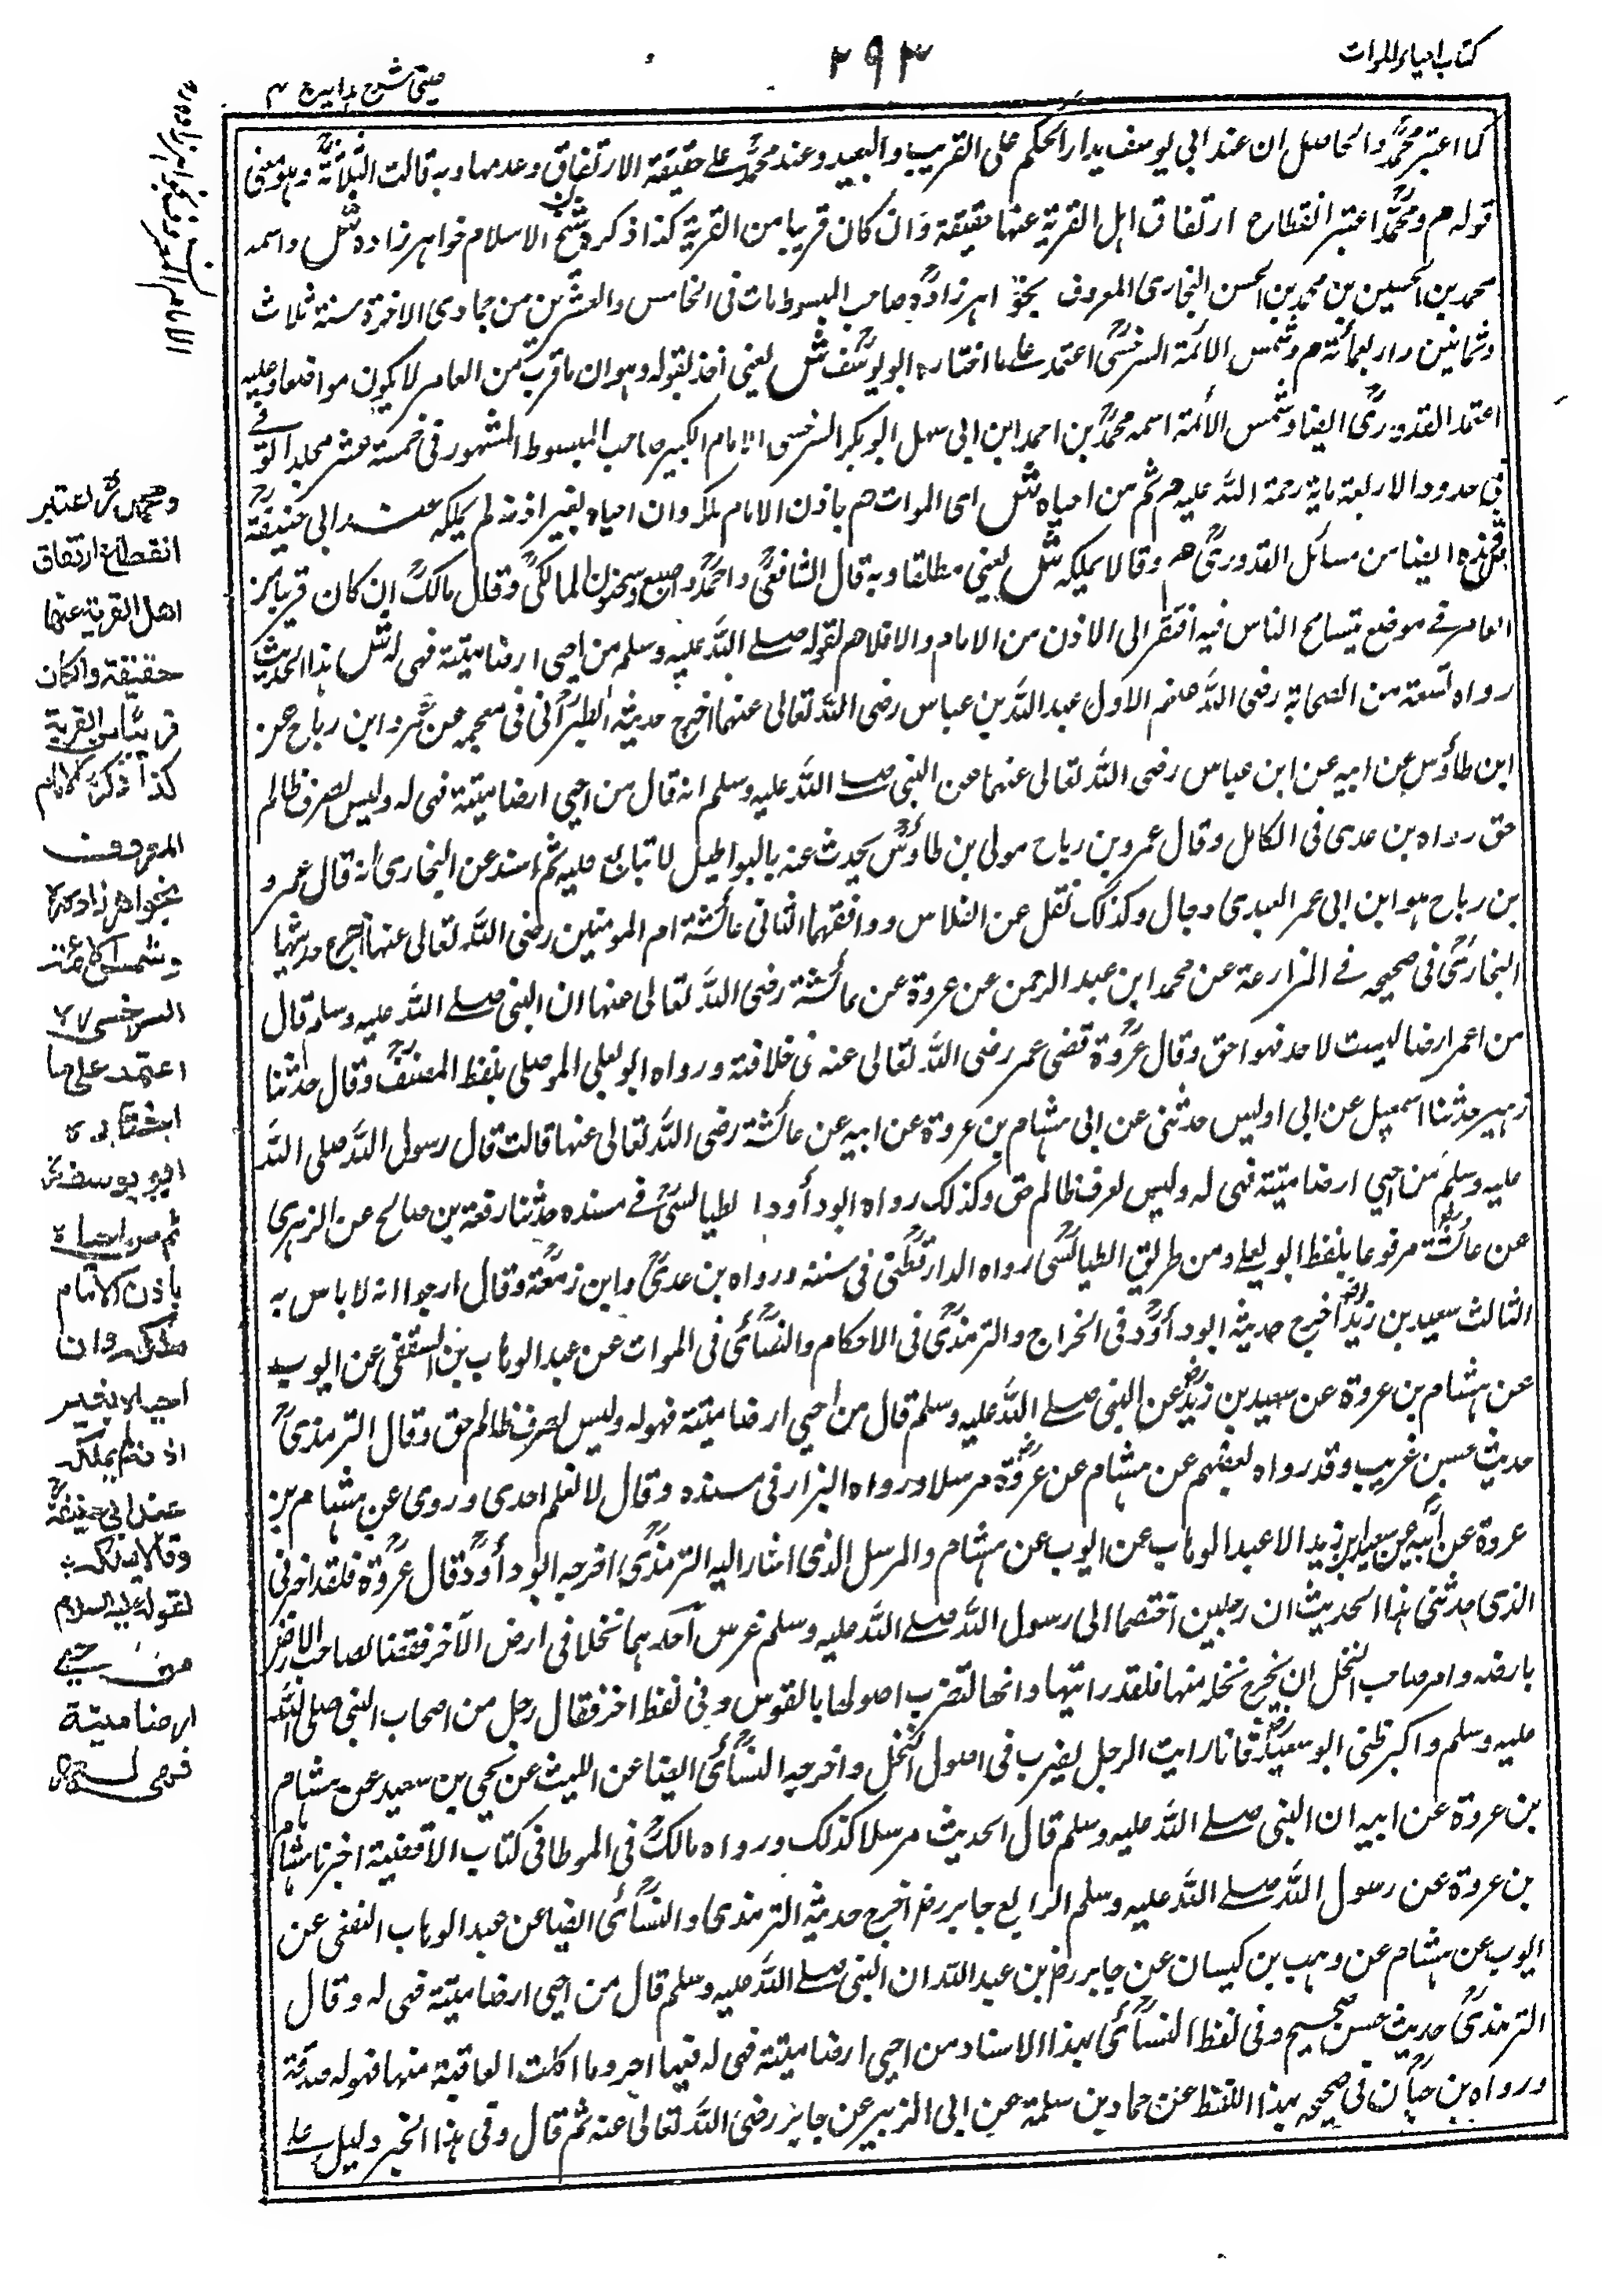 كتاب احياء الموات
٢٩٣
عينى شرح هدايه ج ٤
كما اعتبر محمدؒ والحاصل ان عند ابي يوسف يدار الحكم على القريب والبعيد وعند محمدؒ على حقيقة الارتفاق وعدمها وبه قالت الثلاثةؒ وهو معنى
قوله م ومحمدؒ اعتبر انقطاع ارتفاق اهل القرية عنها حقيقة وان كان قريبا من القرية كذا ذكره شيخ الاسلام خواهر زاده ش واسمه
محمد بن الحسين بن محمد بن الحسن البخارى المعروف بخواهر زادهؒ صاحب المبسوط مات فى الخامس والعشرين من جمادى الاخرة سنة ثلاث
وثمانين واربعمائة م وشمس الائمة السرخسىؒ اعتمد على ما اختاره ابو يوسفؒ ش يعنى اخذ بقوله وهو ان ما قرب من العامر لا يكون مواتا وعليه
اعتمد القدورىؒ ايضا وشمس الأئمة اسمه محمدؒ بن احمد ابن ابى سهل ابو بكر السرخسى الامام الكبير صاحب المبسوط المشهور فى خمسة عشر مجلدا توفى
فى حدود الاربعة ماية رحمة الله عليه م ثم من احياه ش اى الموات هم باذن الامام ملكه وان احياه بغير اذنه لم يملكه عند ابى حنيفةؒ
ش هذه ايضا من مسائل القدورىؒ هم وقالا يملكه ش يعنى مطلقا وبه قال الشافعىؒ واحمدؒ واصبغ وسحنون المالكىؒ وقال مالكؒ ان كان قريبا من
العامر فى موضع يتسامح الناس فيه افتقر الى الاذن من الامام والا فلا هم لقوله صلى الله عليه وسلم من احيى ارضا ميتة فهى له ش هذا الحديث
رواه تسعة من الصحابة رضى الله عنهم الاول عبد الله بن عباس رضى الله تعالى عنهما اخرج حديثه الطبرانىؒ فى معجمه عن عمرو ابن رباح عن
ابن طاؤس عن ابيه عن ابن عباس رضى الله تعالى عنهما عن النبى صلى الله عليه وسلم انه قال من احيى ارضا ميتة فهى له وليس لعرق ظالم
حق رواه بن عدى فى الكامل وقال عمرو بن رباح مولى بن طاؤسؒ يحدث عنه بالبواطيل لا تبابع عليه ثم اسند عن البخارى انه قال عمرو
بن رباح هو ابن ابى عمر العبدى دجال وكذلك نقل عن الفلاس ووافقهما الثانى عائشة ام المومنين رضى الله تعالى عنها اخرج حديثها
البخارىؒ فى صحيحه فى المزارعة عن محمد ابن عبد الرحمن عن عروة عن عائشة رضى الله تعالى عنها ان النبى صلى الله عليه وسلم قال
من اعمر ارضا ليست لاحد فهو احق وقال عروةؒ قضى عمر رضى الله تعالى عنه فى خلافته ورواه ابو يعلى الموصلى بلفظ المصنفؒ وقال حدثنا
زهير حدثنا اسمعيل عن ابى اويس حدثنى عن ابى هشام بن عروة عن ابيه عن عائشة رضى الله تعالى عنها قالت قال رسول الله صلى الله
عليه وسلم من احيى ارضا ميتة فهى له وليس لعرق ظالم حق وكذلك رواه ابو داؤد الطيالسىؒ فى مسنده حدثنا زمعة بن صالح عن الزهرى
عن عائشةؓ مرفوعا بلفظ ابو يعلى ومن طريق الطيالسىؒ رواه الدارقطنىؒ فى سننه ورواه بن عدىؒ وابن زمعةؒ وقال ارجوا انه لا باس به
الثالث سعيد بن زيدؓ اخرج حديثه ابو داؤدؒ فى الخراج والترمذىؒ فى الاحكام والنسائىؒ فى الموات عن عبد الوهاب بن الثقفى عن ايوب
عن هشام بن عروة عن سعيد بن زيدؓ عن النبى صلى الله عليه وسلم قال من احيى ارضا ميتة فهو له وليس لعرق ظالم حق وقال الترمذىؒ
حديث حسن غريب وقد رواه بعضهم عن هشام عن عروةؒ مرسلا ورواه البزار فى مسنده وقال لا نعلم احدى وروى عن هشام بن
عروة عن ابيه عن سعيد بن زيد الا عبد الوهاب عن ايوب عن هشام والمرسل الذى اشار اليه الترمذىؒ اخرجه ابو داؤدؒ قال عروةؒ فلقد اخبرنى
الذى حدثنى هذا الحديث ان رجلين اختصما الى رسول الله صلى الله عليه وسلم غرس احدهما نخلا فى ارض الآخر فقضا لصاحب الارض
بارضه وامر صاحب النخل ان يخرج نخله منها فلقد رايتها وانها لتضرب اصولها بالفوس وفى لفظ اخر فقال رجل من اصحاب النبى صلى الله
عليه وسلم واكبر ظنى ابو سعيدؓ فانا رايت الرجل يضرب فى اصول النخل واخرجه النسائىؒ ايضا عن الليث عن يحيى بن سعيد عن هشام
بن عروة عن ابيه ان النبى صلى الله عليه وسلم قال الحديث مرسلا كذلك ورواه مالكؒ فى الموطا فى كتاب الاقضية اخبرنا هشام
بن عروة عن رسول الله صلى الله عليه وسلم الرابع جابر رضـ اخرج حديثه الترمذى والنسائىؒ ايضا عن عبد الوهاب الثقفى عن
ايوب عن هشام عن وهب بن كيسان عن جابر رضـ بن عبد الله ان النبى صلى الله عليه وسلم قال من احيى ارضا ميتة فهى له وقال
الترمذىؒ حديث حسن صحيح وفى لفظ النسائىؒ بهذا الاسناد من احيى ارضا ميتة فهى له فيها اجر وما اكلت العافية منها فهو له صدقة
ورواه بن حبانؒ فى صحيحه بهذا اللفظ عن حماد بن سلمة عن ابى الزبير عن جابر رضى الله تعالى عنه ثم قال وفى هذا الخبر دليل على
ومحمدؒ اعتبر
انقطاع ارتفاق
اهل القرية عنها
حقيقة وان كان
قريبا من القرية
كذا ذكره الامام
المعروف
بخواهر زادهؒ
وشمس الائمة
السرخسىؒ
اعتمد على ما
اختاره
ابو يوسفؒ
ثم من احياه
باذن الامام
ملكه وان
احياه بغير
اذنه لم يملكه
عند ابى حنيفةؒ
وقالا يملكه
لقوله عليه السلام
من احيى
ارضا ميتة
فهى له